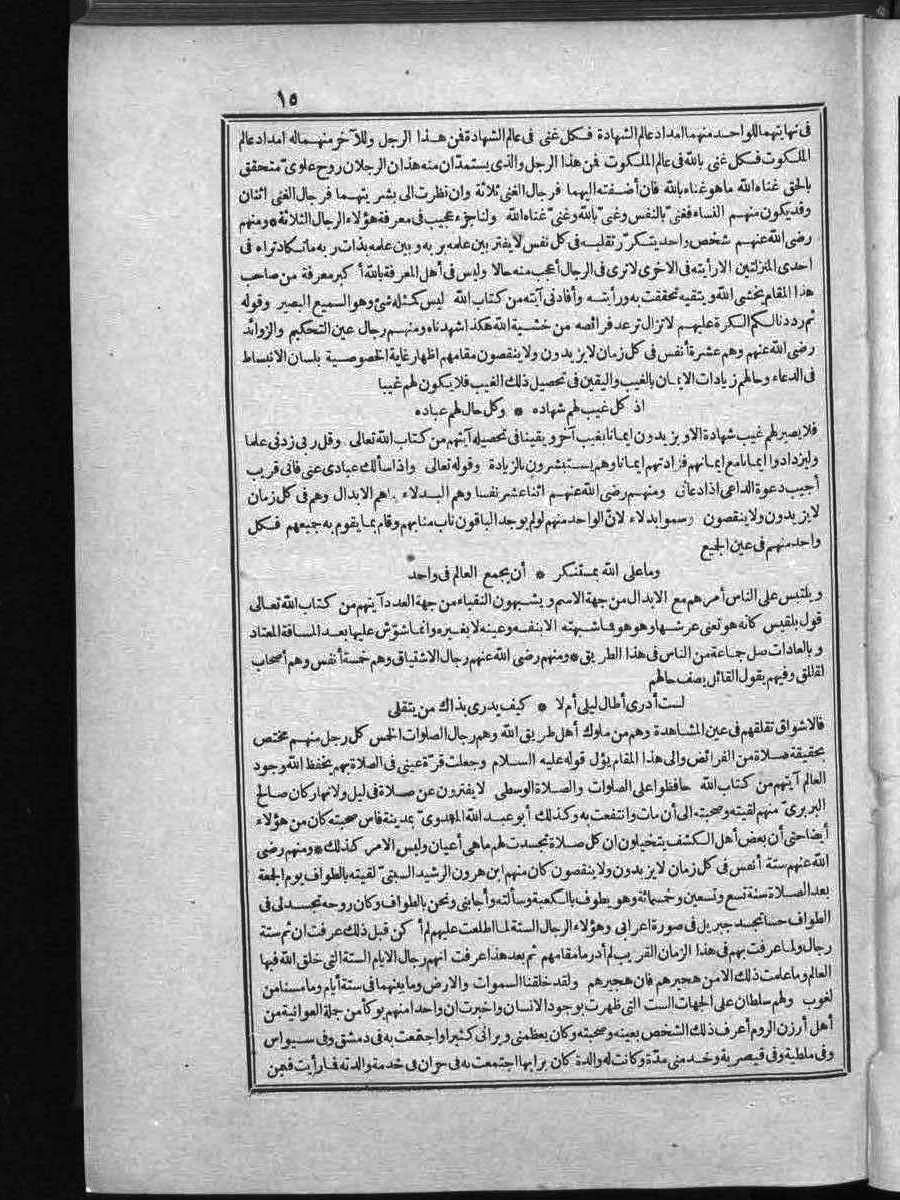 ١٥
في نهايتهما للواحد منهما امداد عالم الشهادة فكل غنى في عالم الشهادة فمن هذا الرجل وللآخر منهما له امداد عالم
الملكوت فكل غنى بالله في عالم الملكوت فمن هذا الرجل والذي يستمدان منه هذان الرجلان روح علوي متحقق
بالحق غناه الله ما هو غناه بالله فان أضفته اليهما فرجال الغنى ثلاثة وان نظرت الى بشريتهما فرجال الغنى اثنان
وقد يكون منهم النساء فغني بالنفس وغني بالله وغني غناه الله ولنا جزء عجيب في معرفة هؤلاء الرجال الثلاثة * ومنهم
رضي الله عنهم شخص واحد يتكرر تقلبه في كل نفس لا يفتر بين علمه بربه وبين علمه بذات ربه ما تكاد تراه في
احدى المنزلتين الا رأيته في الاخرى لا ترى في الرجال أعجب منه حالا وليس في أهل المعرفة بالله أكبر معرفة من صاحب
هذا المقام يخشى الله ويتقيه تحققت به ورأيته وأفادني آيته من كتاب الله ليس كمثله شئ وهو السميع البصير وقوله
ثم رددنا لكم الكرة عليهم لا تزال ترعد فرائصه من خشية الله هكذا شهدناه ومنهم رجال عين التحكيم والزوائد
رضي الله عنهم وهم عشرة أنفس في كل زمان لا يزيدون ولا ينقصون مقامهم اظهار غاية الخصوصية بلسان الانبساط
في الدعاء وحالهم زيادات الايمان بالغيب واليقين في تحصيل ذلك الغيب فلا يكون لهم غيبا
اذ كل غيب لهم شهاده * وكل حال لهم عباده
فلا يصير لهم غيب شهادة الا ويزيدون ايمانا بغيب آخر ويقينا في تحصيله آيتهم من كتاب الله تعالى وقل ربي زدني علما
وليزدادوا ايمانا مع ايمانهم فزادتهم ايمانا وهم يستبشرون بالزيادة وقوله تعالى واذا سألك عبادي عني فاني قريب
أجيب دعوة الداعي اذا دعاني ومنهم رضي الله عنهم اثنا عشر نفسا وهم البدلاء ما هم الابدال وهم في كل زمان
لا يزيدون ولا ينقصون وسموا بدلاء لان الواحد منهم لو لم يوجد الباقون ناب منابهم وقام بما يقوم به جميعهم فكل
واحد منهم في عين الجميع
وما على الله بمستنكر * أن يجمع العالم في واحد
ويلتبس على الناس أمرهم مع الابدال من جهة الاسم ويشبهون النقباء من جهة العدد آيتهم من كتاب الله تعالى
قول بلقيس كانه هو تعني عرشها وهو هو فما شبهته الا بنفسه وعينه لا بغيره وانما شوش عليها بعد المسافة المعتاد
وبالعادات ضل جماعة من الناس في هذا الطريق * ومنهم رضي الله عنهم رجال الاشتياق وهم خمسة أنفس وهم أصحاب
القلق وفيهم يقول القائل يصف حالهم
لست أدري أطال ليلي أم لا * كيف يدري بذاك من يتقلى
فالاشواق تقلقهم في عين المشاهدة وهم من ملوك أهل طريق الله وهم رجال الصلوات الخمس كل رجل منهم مختص
بحقيقة صلاة من الفرائض والى هذا المقام يؤل قوله عليه السلام وجعلت قرة عيني في الصلاة بهم يحفظ الله وجود
العالم آيتهم من كتاب الله حافظوا على الصلوات والصلاة الوسطى لا يفترون عن صلاة في ليل ولا نهار كان صالح
البربري منهم لقيته وصحبته الى أن مات وانتفعت به وكذلك أبو عبد الله المهدوي بمدينة فاس صحبته كان من هؤلاء
أيضا حتى أن بعض أهل الكشف يتخيلون ان كل صلاة تجسدت لهم ما هي أعيان وليس الامر كذلك * ومنهم رضي
الله عنهم ستة أنفس في كل زمان لا يزيدون ولا ينقصون كان منهم ابن هرون الرشيد السبتي لقيته بالطواف يوم الجمعة
بعد الصلاة سنة تسع وتسعين وخمسمائة وهو يطوف بالكعبة وسألته وأجابني ونحن بالطواف وكان روحه تجسد لي في
الطواف حسا تجسد جبريل في صورة اعرابي وهؤلاء الرجال الستة لما اطلعت عليهم لم أكن قبل ذلك عرفت ان ثم ستة
رجال ولما عرفت بهم في هذا الزمان القريب لم أدر ما مقامهم ثم بعد هذا عرفت انهم رجال الايام الستة التي خلق الله فيها
العالم وما علمت ذلك الا من هجيرهم فان هجيرهم ولقد خلقنا السموات والارض وما بينهما في ستة أيام وما مسنا من
لغوب ولهم سلطان على الجهات الست التي ظهرت بوجود الانسان واخبرت ان واحدا منهم يوكأ من جملة العوانية من
أهل أرزن الروم أعرف ذلك الشخص بعينه وصحبته وكان يعظمني ويراني كثيرا واجتمعت به في دمشق وفي سيواس
وفي ملطية وفي قيصرية وخدمني مدة وكانت له والدة كان برا بها اجتمعت به في حران في خدمة والدته فما رأيت فيمن